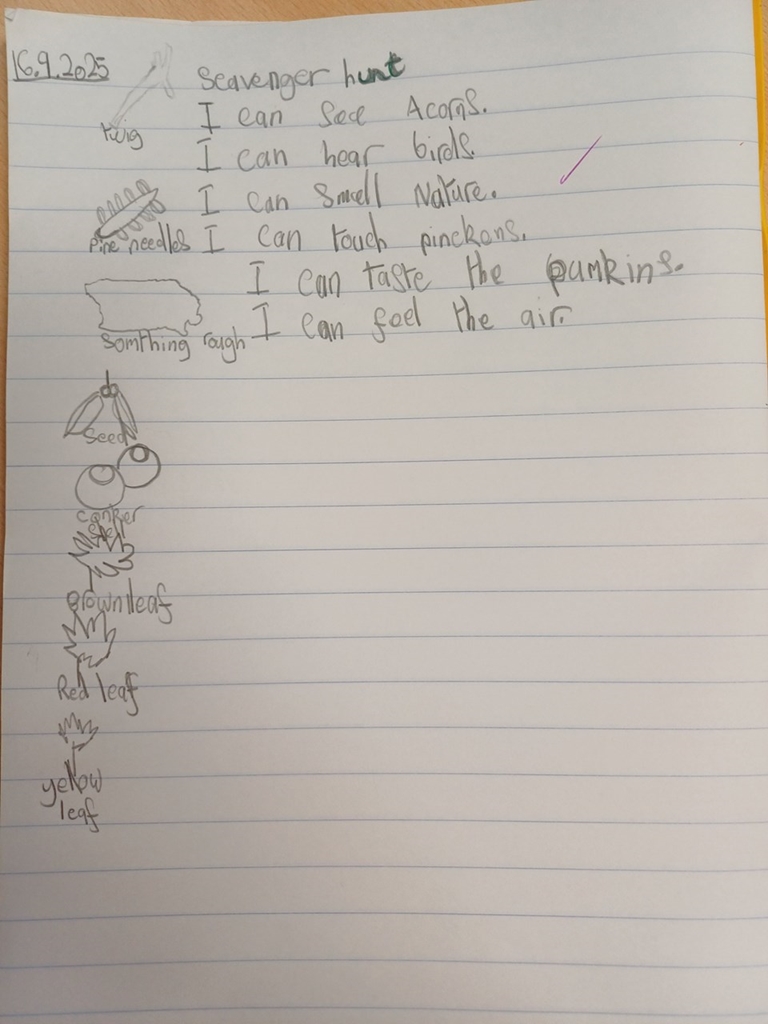 16.9.2025
Scavenger hunt
twig
I can see Acorns.
I can hear birds.
I can Smell Nature.
Pine needles
I can touch pinckons.
I can taste the pumkins.
Somthing rough
I can feel the air.
Seed
conker
shell
Brown leaf
Red leaf
yellow
leaf